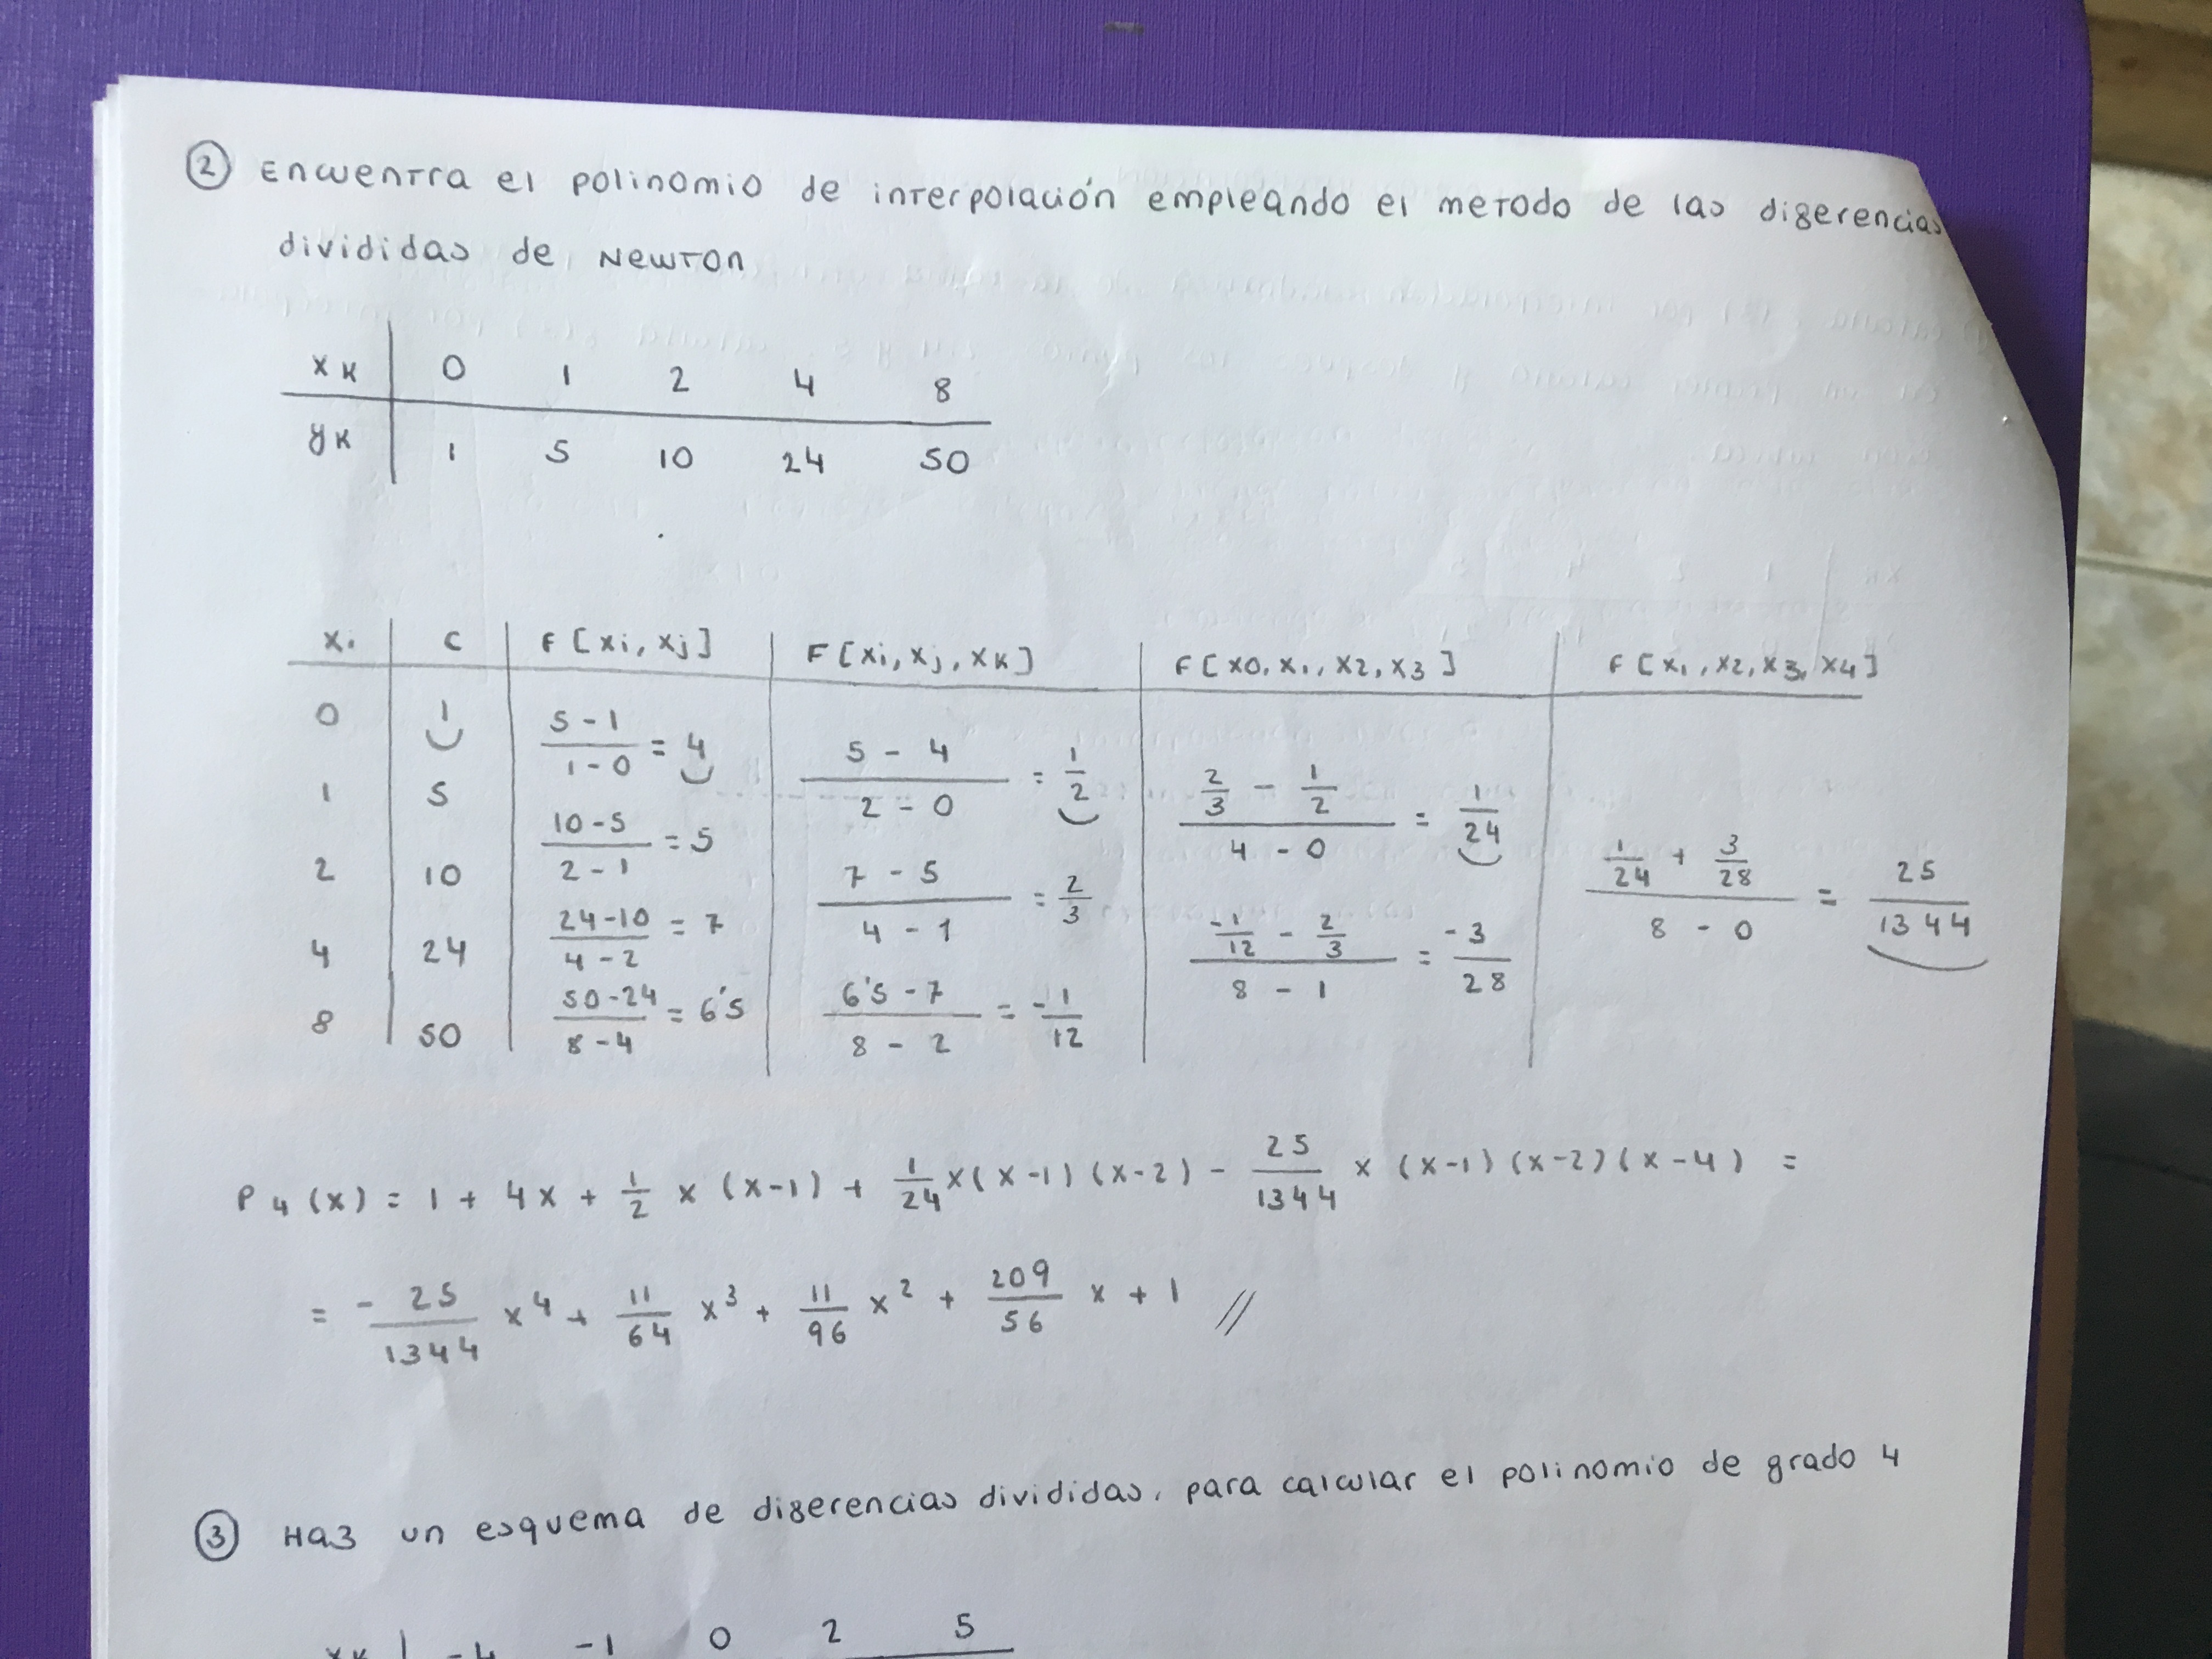 ② Encuentra el polinomio de interpolación empleando el metodo de las diferencias
divididas de Newton
xk | 0 1 2 4 8
yk | 1 5 10 24 50
xi | c | F[xi, xj] | F[xi, xj, xk] | F[x0, x1, x2, x3] | F[x1, x2, x3, x4]
0 | 1 | (5-1)/(1-0) = 4 | (5-4)/(2-0) = 1/2 | (2/3 - 1/2)/(4-0) = 1/24 | (1/24 + 3/28)/(8-0) = 25/1344
1 | 5 | (10-5)/(2-1) = 5 | (7-5)/(4-1) = 2/3 | (-1/12 - 2/3)/(8-1) = -3/28
2 | 10 | (24-10)/(4-2) = 7 | (6'5-7)/(8-2) = -1/12
4 | 24 | (50-24)/(8-4) = 6'5
8 | 50
P4(x) = 1 + 4x + 1/2 x (x-1) + 1/24 x (x-1) (x-2) - 25/1344 x (x-1) (x-2) (x-4) =
= - 25/1344 x⁴ + 11/64 x³ + 11/96 x² + 209/56 x + 1 //
③ Haz un esquema de diferencias divididas, para calcular el polinomio de grado 4
xk | -4 -1 0 2 5